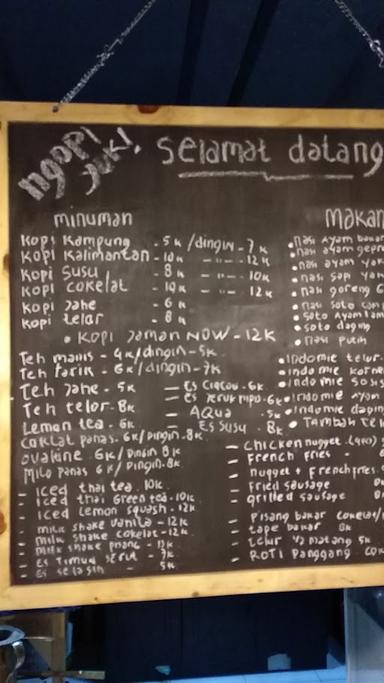 ngopi yuk!
selamat datang
minuman
Kopi Kampung - 5k /dingin - 7k
Kopi Kalimantan - 10k - " - - 12k
Kopi susu - 8k - " - - 10k
Kopi cokelat - 10k - " - - 12k
kopi Jahe - 6k
kopi telor - 8k
• Kopi Jaman NOW - 12K
Teh manis - 4k/dingin - 5k
Teh tarik - 6k/dingin - 7k
Teh Jahe - 5k
Teh telor - 8k
Lemon tea - 6k
Coklat panas - 6k/Dingin - 8k
ovaltine - 6k/Dingin 8k
Milo Panas 6k/Dingin - 8k
– Es Cincau - 6k
– Es Jeruk
– AQUA - 5k
– Es Susu - 8k
– Iced thai tea - 10k
– Iced thai Green tea - 10k
– Iced Lemon squash - 12k
– milk shake Vanila - 12k
– milk shake cokelat - 12k
– milk shake
– Es Timun Serut - 7k
– Es selasih - 5k
Makan
• nasi Ayam bakar
• nasi ayam gepre
• nasi ayam
• nasi sapi
• nasi goreng
• nasi soto
• soto Ayam
• soto daging
• nasi putih
• Indomie telur
• indomie korne
• indomie sosis
• Indomie Ayam
• Indomie dagin
• Tambah tel
– Chicken nugget
– French fries
– nugget + Frenchfries
– Fried sausage
– grilled sausage
– Pisang bakar cokelat/
– tape bakar 8k
– Telur 1/2 matang 5k
– ROTI Panggang